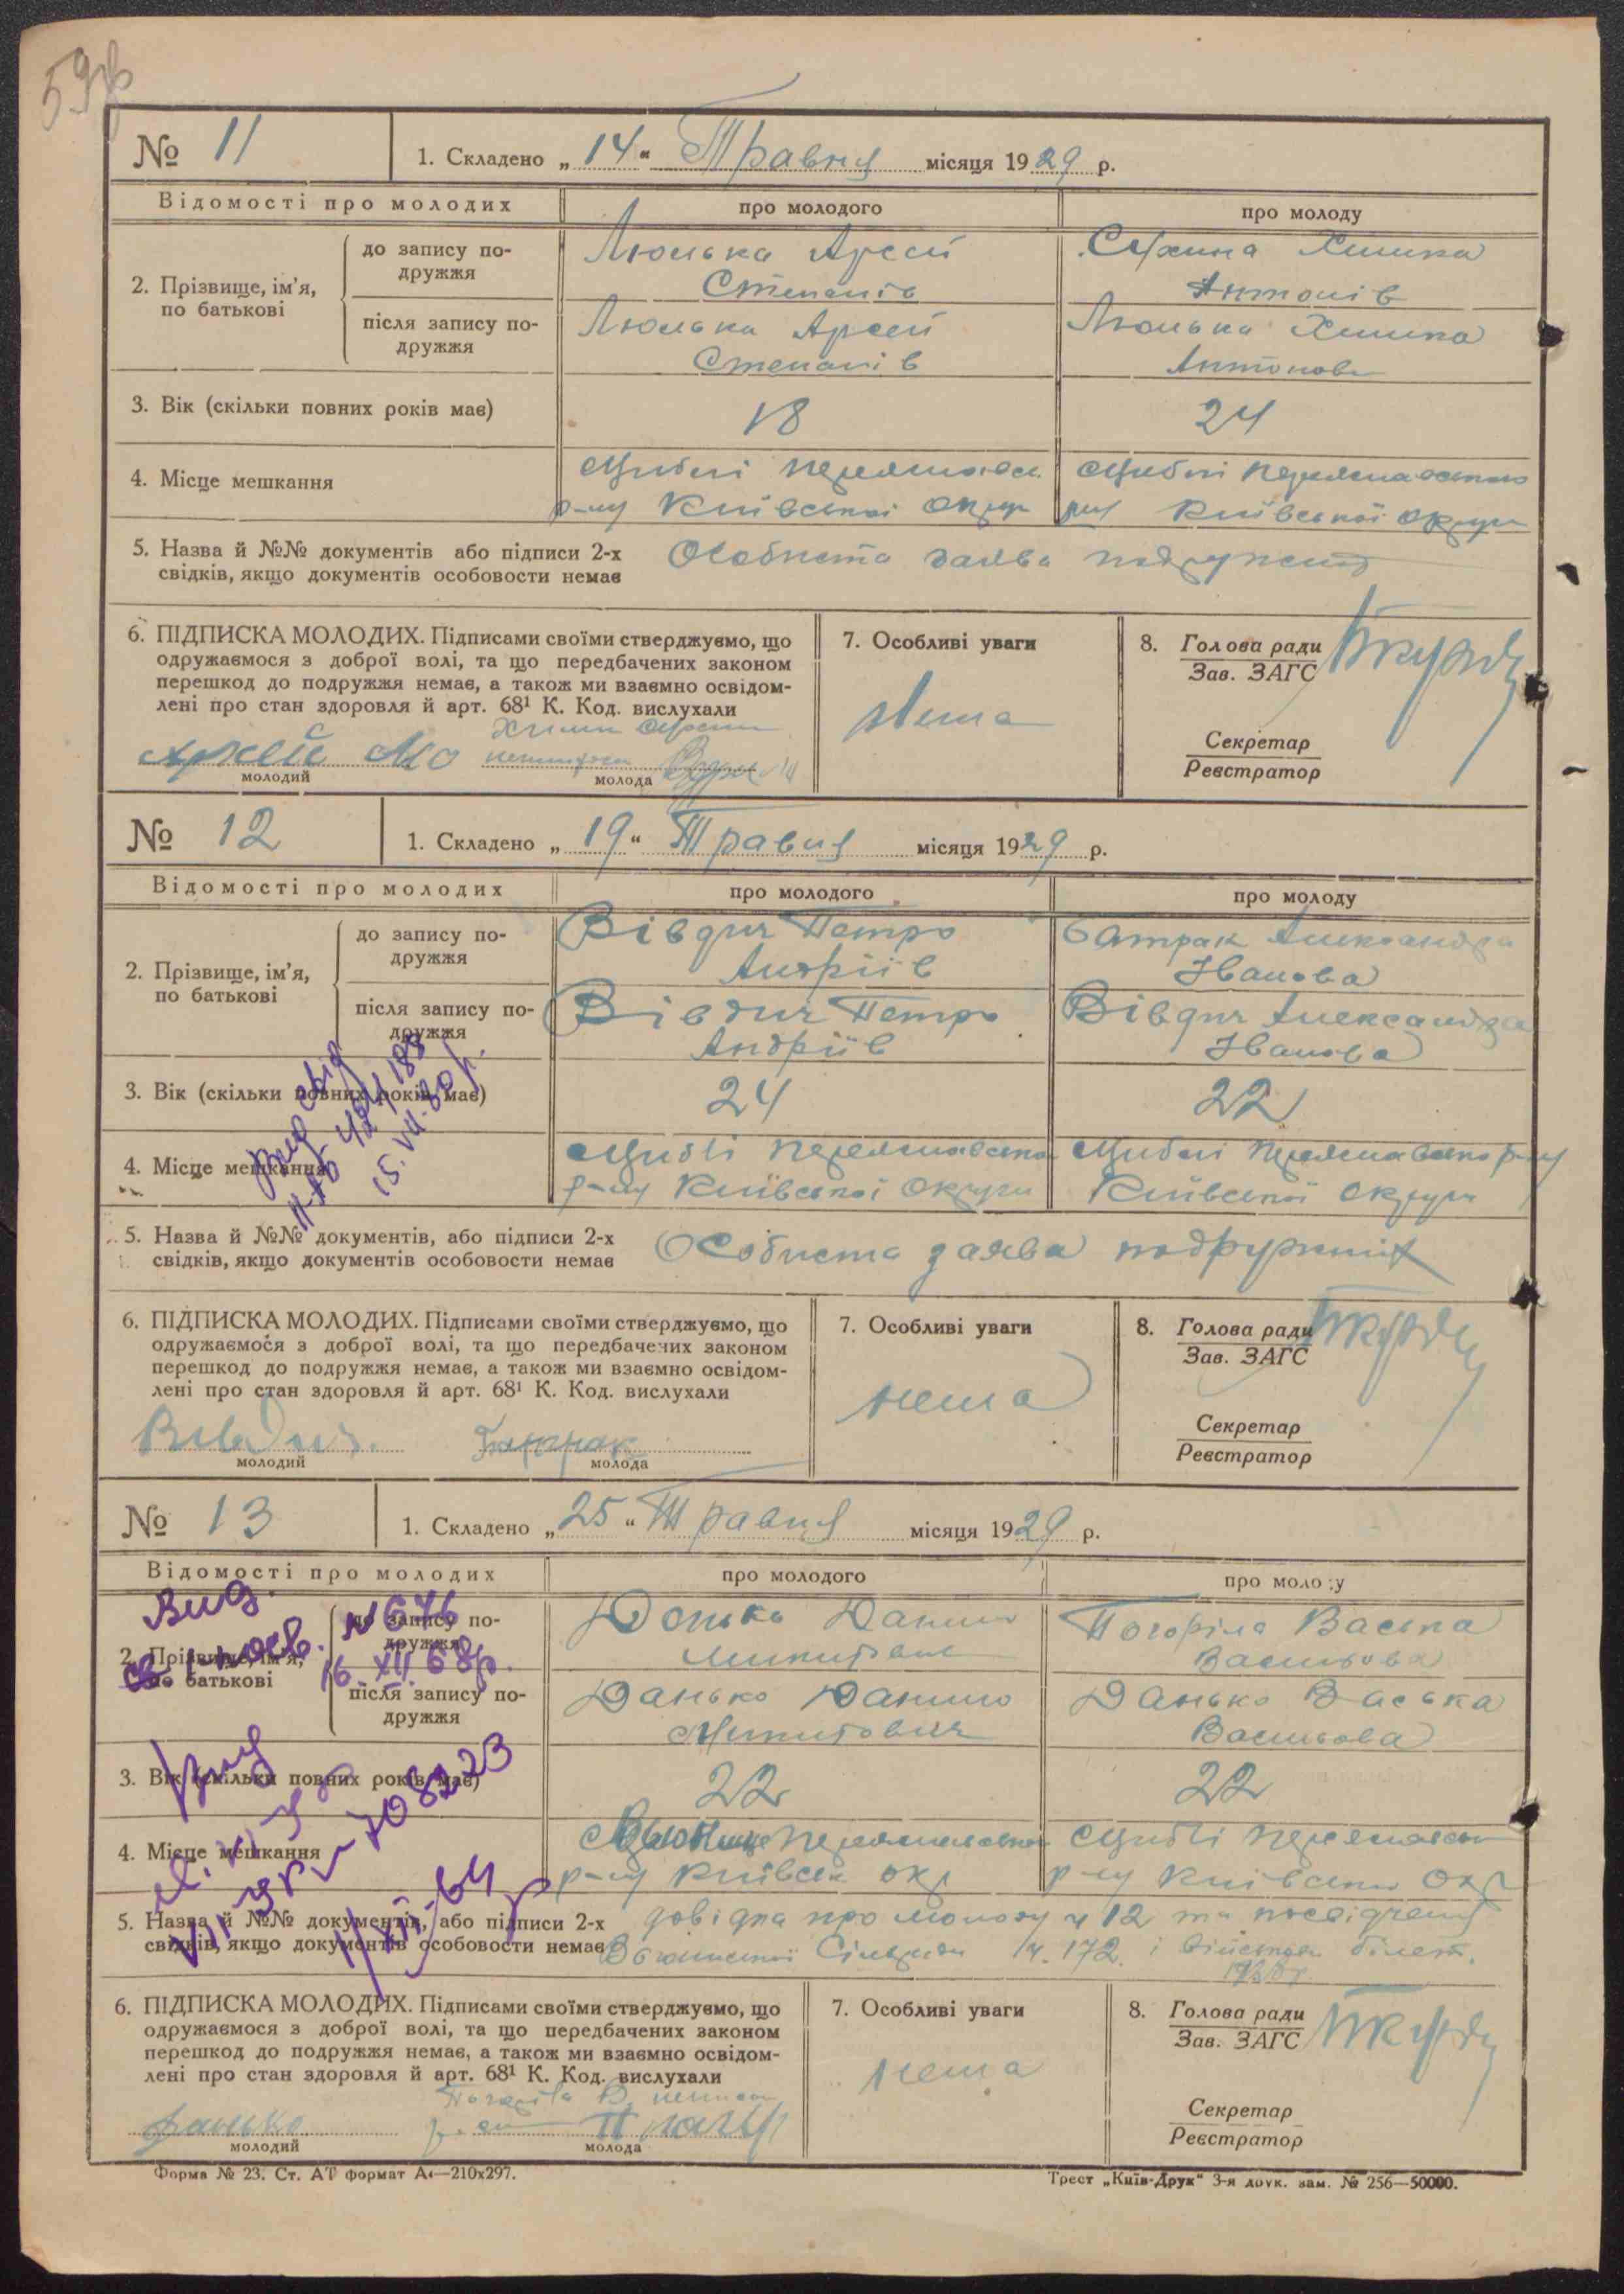 № 11
1. Складено „ 14 “ Травня місяця 1929 р.
Відомості про молодих
про молодого
про молоду
2. Прізвище, ім’я, по батькові
до запису подружжя
Люлька Арсен
Степанів
Химка
Антонів
після запису подружжя
Люлька Арсен
Степанів
Люлька Химка
Антонова
3. Вік (скільки повних років має)
18
24
4. Місце мешкання
Циблі
р-ну Київської округи
Циблі
р-ну Київської округи
5. Назва й №№ документів або підписи 2-х
свідків, якщо документів особовости немає
Особиста заява подружжя
6. ПІДПИСКА МОЛОДИХ. Підписами своїми стверджуємо, що
одружаємося з доброї волі, та що передбачених законом
перешкод до подружжя немає, а також ми взаємно освідом-
лені про стан здоровля й арт. 68¹ К. Код. вислухали
молодий
молода
7. Особливі уваги
Нема
8. Голова ради
Зав. ЗАГС
Секретар
Реєстратор
№ 12
1. Складено „ 19 “ Травня місяця 1929 р.
Відомості про молодих
про молодого
про молоду
2. Прізвище, ім’я,
по батькові
до запису по-
дружжя
Вівдич Петро
Андріїв
Батрак Александра
Іванова
після запису по-
дружжя
Вівдич Петро
Андріїв
Вівдич Александра
Іванова
3. Вік (скільки повних років має)
24
22
4. Місце мешкання
Циблі
р-ну Київської округи
Циблі
Київської округи
15.VII.80р.
5. Назва й №№ документів, або підписи 2-х
свідків, якщо документів особовости немає
Особиста заява подружжя
6. ПІДПИСКА МОЛОДИХ. Підписами своїми стверджуємо, що
одружаємося з доброї волі, та що передбачених законом
перешкод до подружжя немає, а також ми взаємно освідом-
лені про стан здоровля й арт. 68¹ К. Код. вислухали
Вівдич
молодий
Батрак
молода
7. Особливі уваги
нема
8. Голова ради
Зав. ЗАГС
Секретар
Реєстратор
№ 13
1. Складено „ 25 “ Травня місяця 1929 р.
Відомості про молодих
про молодого
про молоду
Вид.
№ 676
16.XII.68р.
2. Прізвище, ім’я,
по батькові
до запису по-
дружжя
Данько Данило
Погоріла Васька
Васильова
після запису по-
дружжя
Данько Данило
Микитович
Данько Васька
Васильова
3. Вік (скільки повних років має)
22
22
4. Місце мешкання
р-ну Київськ окр
Циблі
р-ну окр
708223
5. Назва й №№ документів, або підписи 2-х
свідків, якщо документів особовости немає
довідка про молоду ч 12 та
ч. 172. і білет.
6. ПІДПИСКА МОЛОДИХ. Підписами своїми стверджуємо, що
одружаємося з доброї волі, та що передбачених законом
перешкод до подружжя немає, а також ми взаємно освідом-
лені про стан здоровля й арт. 68¹ К. Код. вислухали
Данько
молодий
молода
7. Особливі уваги
нема
8. Голова ради
Зав. ЗАГС
Секретар
Реєстратор
Форма № 23. Ст. АТ формат А4—210х297.
Трест „Київ-Друк“ 3-я друк. зам. № 256—50000.